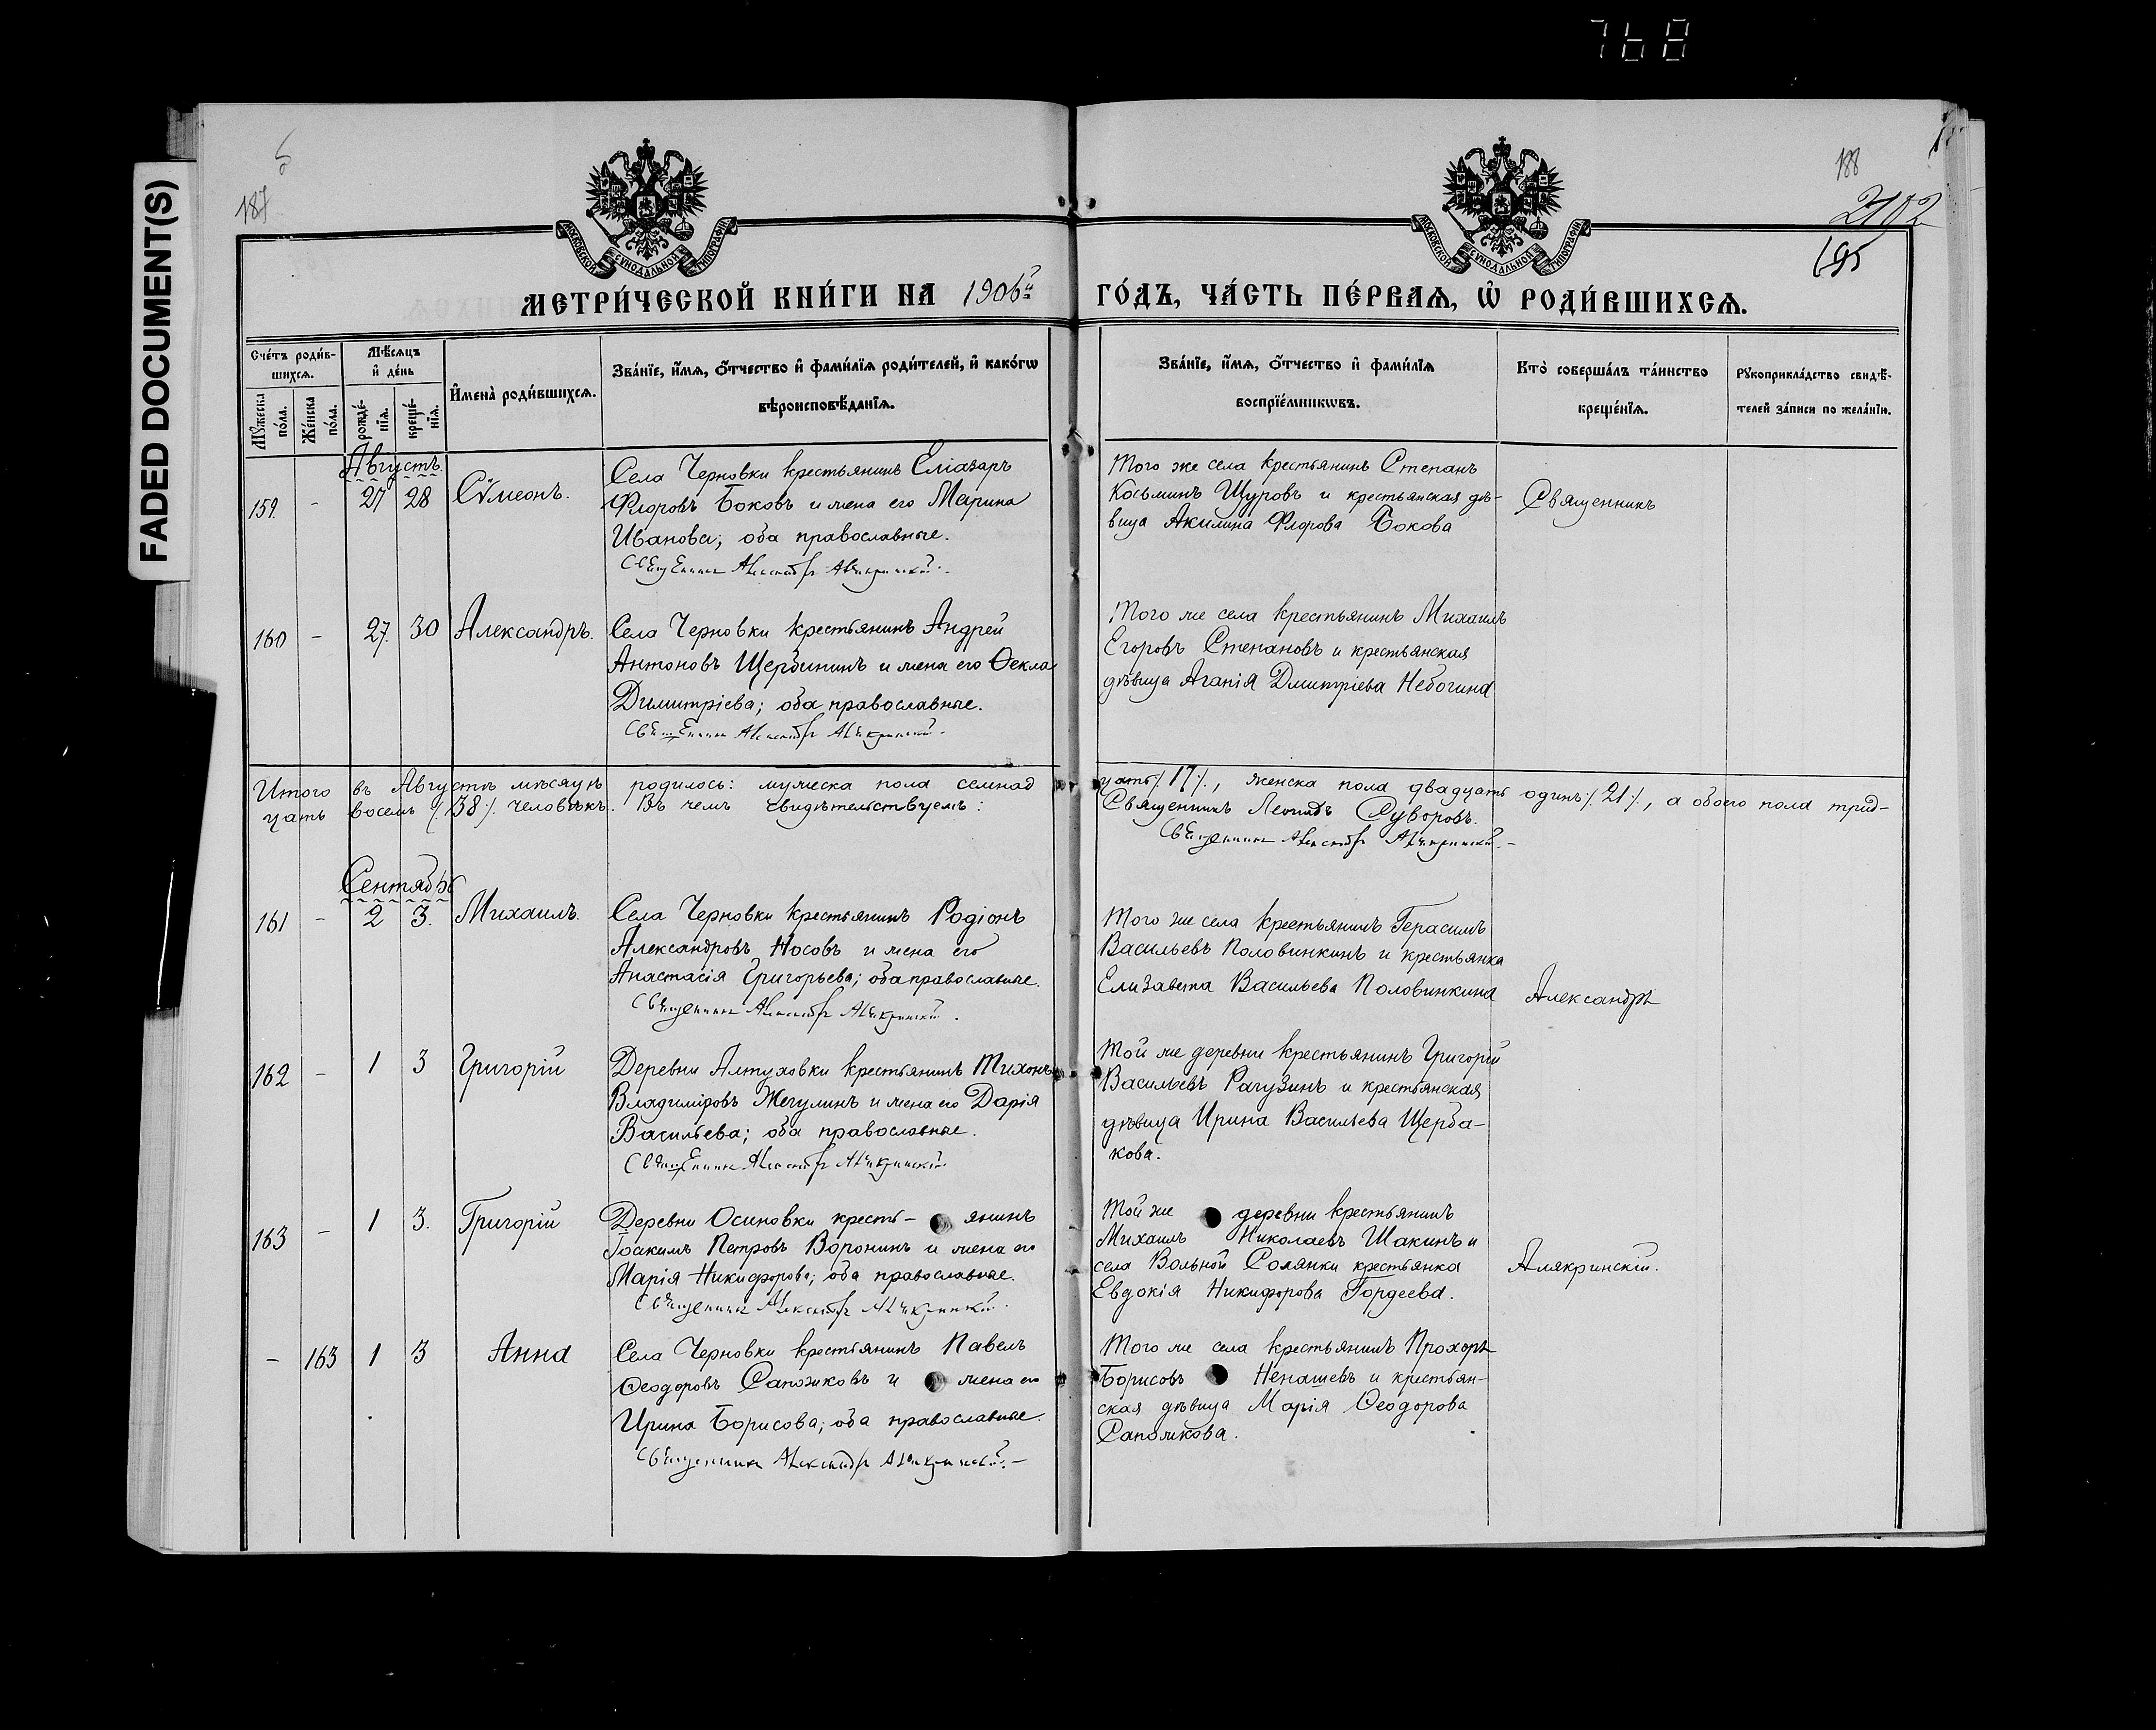 768
FADED DOCUMENT(S)
187
188
2102
195
МОСКОВСКОЙ СѴНОДАЛЬНОЙ ТИПОГРАФІИ
МОСКОВСКОЙ СѴНОДАЛЬНОЙ ТИПОГРАФІИ
МЕТРИ́ЧЕСКОЙ КНИ́ГИ НА 1906й ГО́ДЪ, ЧА́СТЬ ПЕ́РВАѦ, Ѡ҆ РОДИ́ВШИХСѦ.
Сче́тъ роди́в-
шихсѧ.
Мѣ́сѧцъ
и҆ де́нь
И҆мена̀ роди́вшихсѧ.
Зва́нїе, и҆́мѧ, ѻ҆́тчество и҆ фами́лїѧ роди́телей, и҆ како́гѡ
вѣроисповѣ́данїѧ.
Мꙋ́жеска
по́ла.
Же́нска
по́ла.
рожде́-
нїѧ.
креще́-
нїѧ.
Зва́нїе, и҆́мѧ, ѻ҆́тчество и҆ фами́лїѧ
воспрїе́мникѡвъ.
Кто̀ соверша́лъ та́инство
креще́нїѧ.
Рꙋкоприкла́дство свидѣ́-
телей за́писи по жела́нїю.
Августъ.
159. - 27 28 Сѵмеонъ.
Села Черновки крестьянинъ Еліазаръ
Флоровъ Боковъ и жена его Марина
Иванова; оба православные.
Священникъ Александръ Алякринскій.
Того же села крестьянинъ Степанъ
Косьминъ Щуровъ и крестьянская дѣ-
вица Акилина Флорова Бокова
Священникъ
160 - 27. 30 Александръ.
Села Черновки крестьянинъ Андрей
Антоновъ Щербининъ и жена его Ѳекла
Димитріева; оба православные.
Священникъ Александръ Алякринскій.
Того же села крестьянинъ Михаилъ
Егоровъ Степановъ и крестьянская
дѣвица Агапія Дмитріева Небогина
Итого въ Августѣ мѣсяцѣ родилось: мужеска пола семнад
цать /.17/., женска пола двадцать одинъ /.21/., а обоего пола трид-
цать восемь /.38/. человѣкъ. Въ чемъ свидѣтельствуемъ:
Священникъ Леонидъ Суворовъ.
Священникъ Александръ Алякринскій.-
Сентябрь
161 - 2 3. Михаилъ.
Села Черновки крестьянинъ Родіонъ
Александровъ Носовъ и жена его
Анастасія Григорьева; оба православные.
Священникъ Александръ Алякринскій.
Того же села крестьянинъ Герасимъ
Васильевъ Половинкинъ и крестьянка
Елизавета Васильева Половинкина
Александръ
162 - 1 3 Григорій
Деревни Алтуховки крестьянинъ Тихонъ
Владиміровъ Жегулинъ и жена его Дарія
Васильева; оба православные.
Священникъ Александръ Алякринскій.
Той же деревни крестьянинъ Григорій
Васильевъ Рагузинъ и крестьянская
дѣвица Ирина Васильева Щерба-
кова.
163 - 1 3. Григорій
Деревни Осиновки кресть- янинъ
Іоакимъ Петровъ Воронинъ и жена его
Марія Никифорова; оба православные.
Священникъ Александръ Алякринскій.
Той же деревни крестьянинъ
Михаилъ Николаевъ Шакинъ и
села Вольной Солянки крестьянка
Евдокія Никифорова Гордеева.
Алякринскій.
- 163 1 3 Анна
Села Черновки крестьянинъ Павелъ
Ѳеодоровъ Сапожковъ и жена его
Ирина Борисова; оба православные.
Священникъ Александръ Алякринскій.-
Того же села крестьянинъ Прохоръ
Борисовъ Ненашевъ и крестьян-
ская дѣвица Марія Ѳеодорова
Сапожкова.